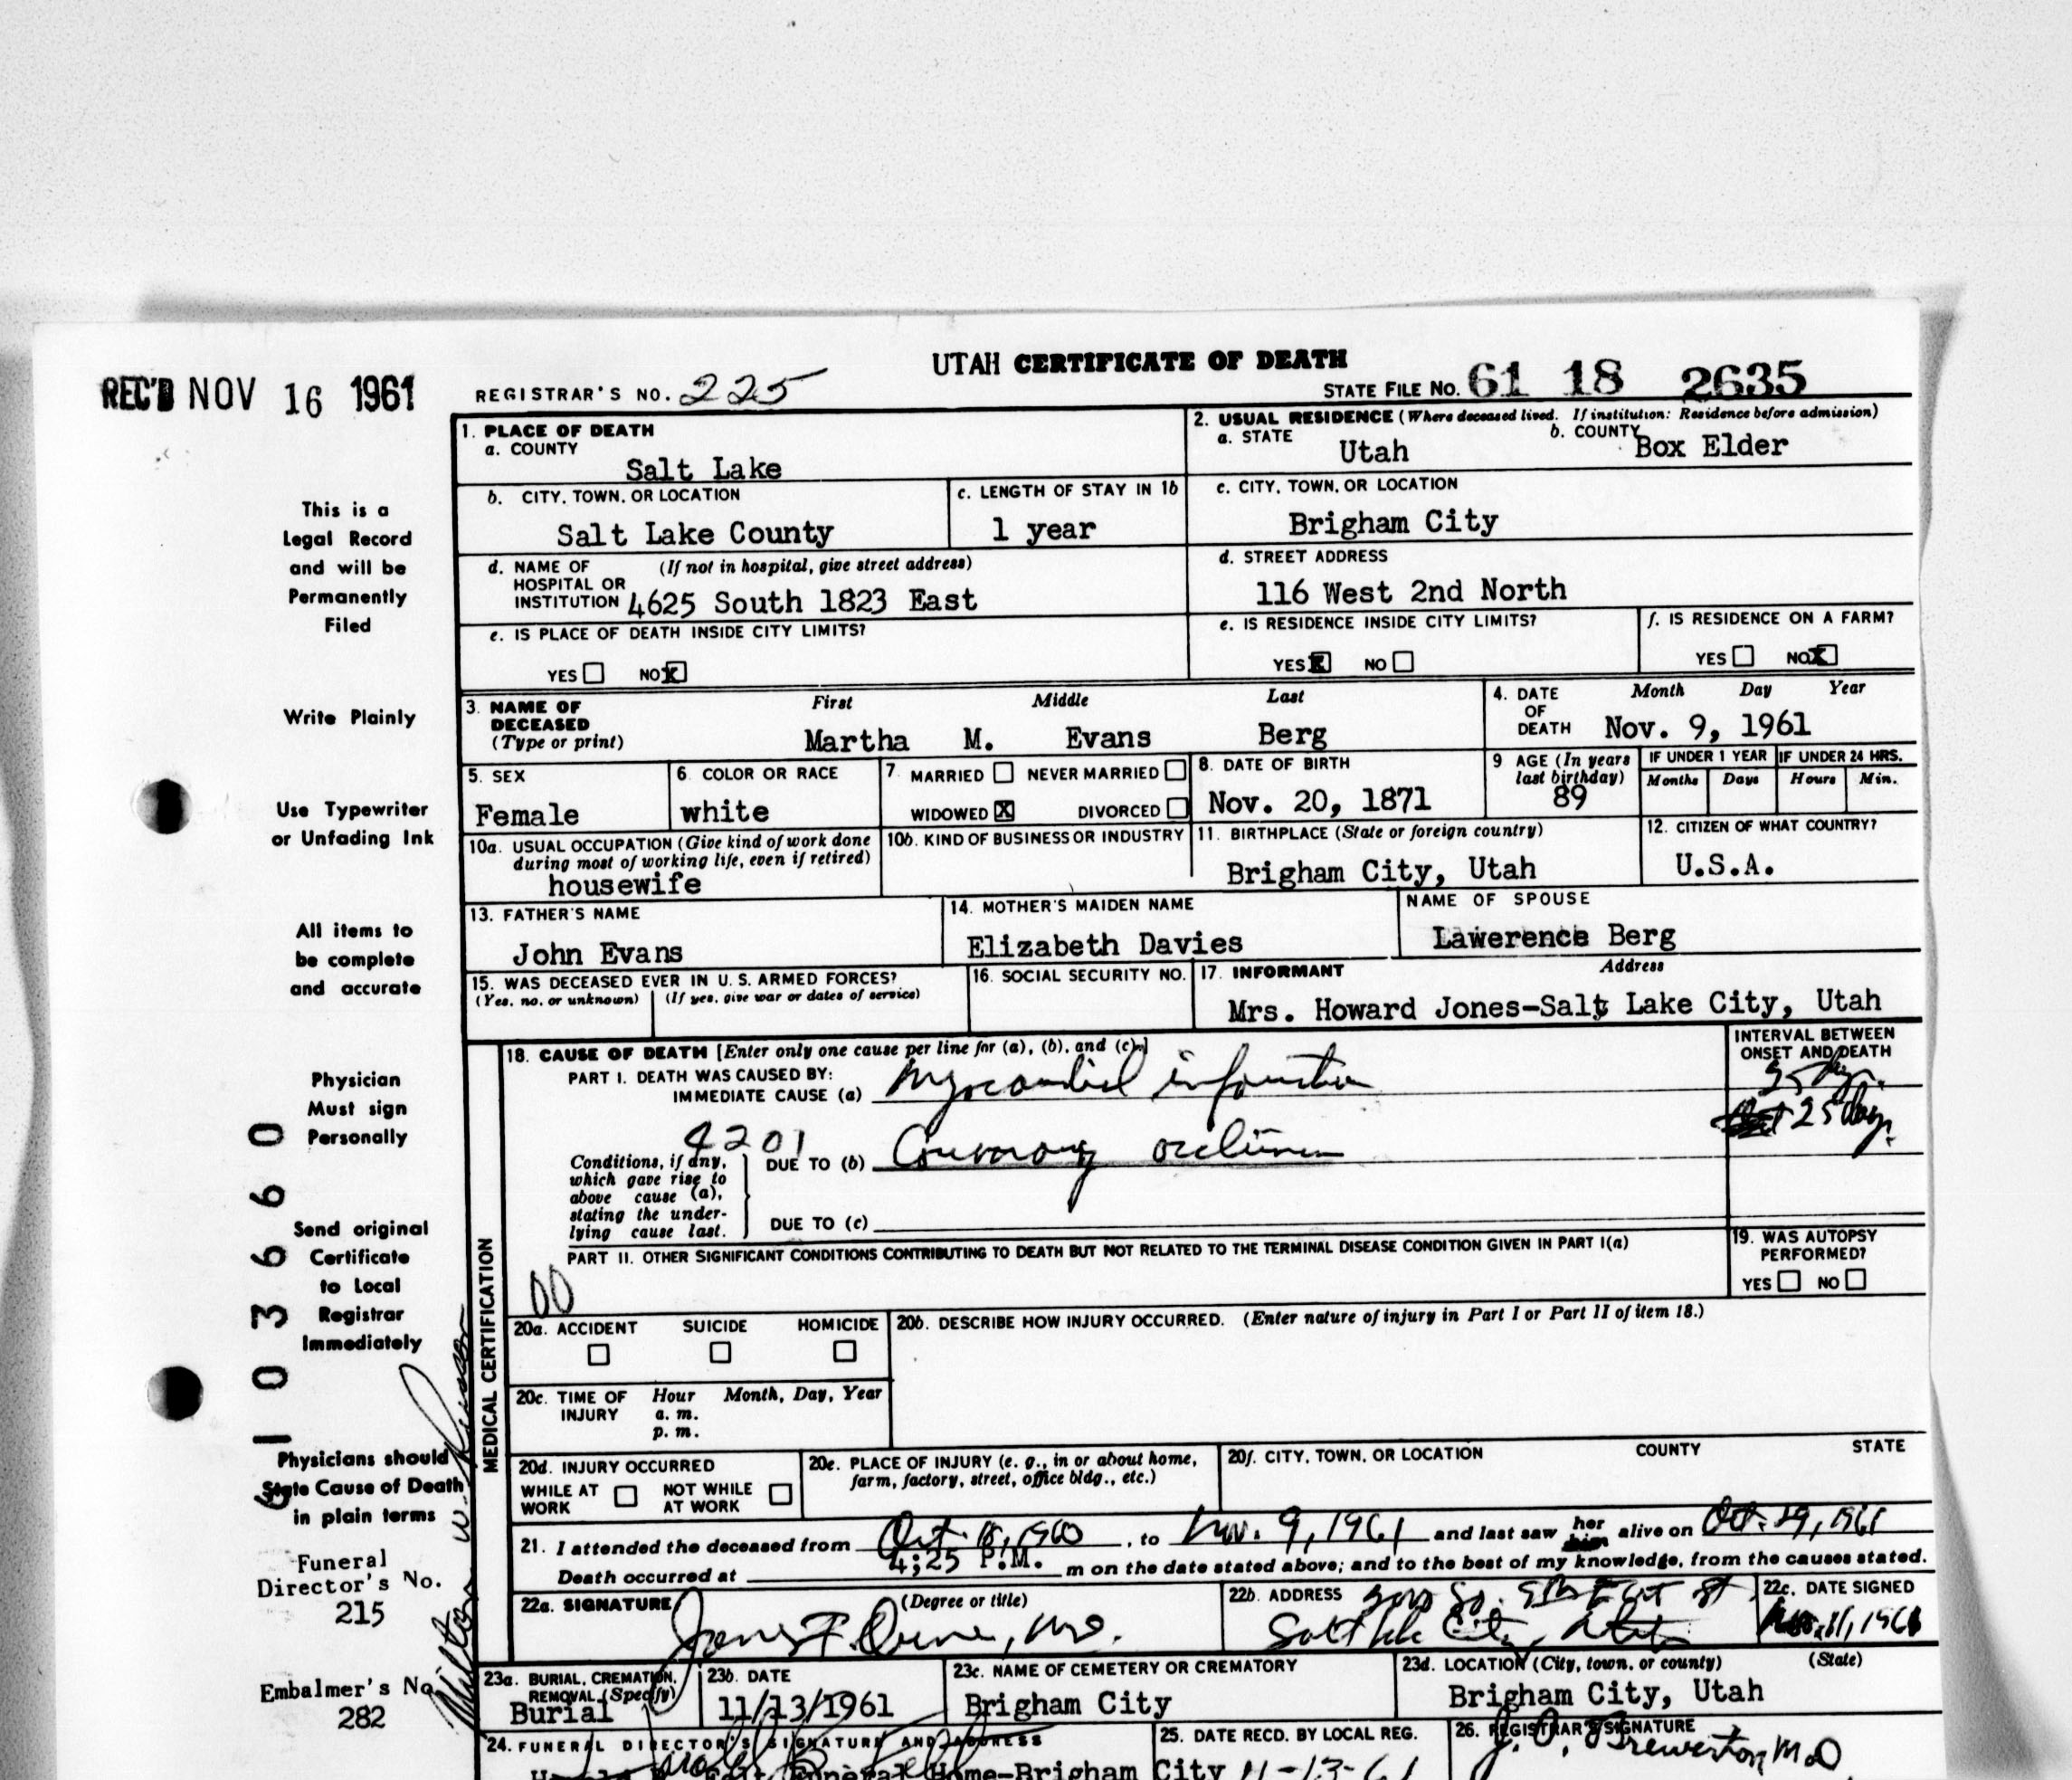 UTAH CERTIFICATE OF DEATH
REC'D NOV 16 1961
REGISTRAR'S NO. 225
STATE FILE NO. 61 18 2635
1. PLACE OF DEATH
a. COUNTY
Salt Lake
2. USUAL RESIDENCE (Where deceased lived. If institution: Residence before admission)
a. STATE Utah b. COUNTY Box Elder
b. CITY, TOWN, OR LOCATION
Salt Lake County
c. LENGTH OF STAY IN 1b
1 year
c. CITY, TOWN, OR LOCATION
Brigham City
d. NAME OF (If not in hospital, give street address)
HOSPITAL OR
INSTITUTION 4625 South 1823 East
d. STREET ADDRESS
116 West 2nd North
e. IS PLACE OF DEATH INSIDE CITY LIMITS?
YES NO X
e. IS RESIDENCE INSIDE CITY LIMITS?
YES X NO
f. IS RESIDENCE ON A FARM?
YES NO X
3. NAME OF
DECEASED
(Type or print)
First Middle Last
Martha M. Evans Berg
4. DATE
OF
DEATH
Month Day Year
Nov. 9, 1961
5. SEX
Female
6. COLOR OR RACE
white
7. MARRIED NEVER MARRIED
WIDOWED X DIVORCED
8. DATE OF BIRTH
Nov. 20, 1871
9 AGE (In years
last birthday)
89
IF UNDER 1 YEAR
Months Days
IF UNDER 24 HRS.
Hours Min.
10a. USUAL OCCUPATION (Give kind of work done
during most of working life, even if retired)
housewife
10b. KIND OF BUSINESS OR INDUSTRY
11. BIRTHPLACE (State or foreign country)
Brigham City, Utah
12. CITIZEN OF WHAT COUNTRY?
U.S.A.
13. FATHER'S NAME
John Evans
14. MOTHER'S MAIDEN NAME
Elizabeth Davies
NAME OF SPOUSE
Lawerence Berg
15. WAS DECEASED EVER IN U.S. ARMED FORCES?
(Yes, no, or unknown) (If yes, give war or dates of service)
16. SOCIAL SECURITY NO.
17. INFORMANT Address
Mrs. Howard Jones-Salt Lake City, Utah
MEDICAL CERTIFICATION
18. CAUSE OF DEATH [Enter only one cause per line for (a), (b), and (c).]
PART I. DEATH WAS CAUSED BY:
IMMEDIATE CAUSE (a) Myocardial infarction
INTERVAL BETWEEN
ONSET AND DEATH
25 days
25 days
4201
Conditions, if any,
which gave rise to
above cause (a),
stating the under-
lying cause last.
DUE TO (b) Coronary occlusion
DUE TO (c)
PART II. OTHER SIGNIFICANT CONDITIONS CONTRIBUTING TO DEATH BUT NOT RELATED TO THE TERMINAL DISEASE CONDITION GIVEN IN PART I(a)
00
19. WAS AUTOPSY
PERFORMED?
YES NO
20a. ACCIDENT SUICIDE HOMICIDE
20b. DESCRIBE HOW INJURY OCCURRED. (Enter nature of injury in Part I or Part II of item 18.)
20c. TIME OF INJURY
Hour Month, Day, Year
a. m.
p. m.
20d. INJURY OCCURRED
WHILE AT WORK NOT WHILE AT WORK
20e. PLACE OF INJURY (e. g., in or about home,
farm, factory, street, office bldg., etc.)
20f. CITY, TOWN, OR LOCATION COUNTY STATE
21. I attended the deceased from Oct. 18, 1960, to Nov. 9, 1961 and last saw her him alive on Oct. 29, 1961
Death occurred at 4;25 P.M. m on the date stated above; and to the best of my knowledge, from the causes stated.
22a. SIGNATURE (Degree or title)
22b. ADDRESS
Salt Lake City, Utah
22c. DATE SIGNED
Nov. 11, 1961
23a. BURIAL, CREMATION,
REMOVAL (Specify)
Burial
23b. DATE
11/13/1961
23c. NAME OF CEMETERY OR CREMATORY
Brigham City
23d. LOCATION (City, town, or county) (State)
Brigham City, Utah
24. FUNERAL DIRECTOR'S SIGNATURE AND ADDRESS
Funeral Home-Brigham City
25. DATE RECD. BY LOCAL REG.
11-13-61
26. REGISTRAR'S SIGNATURE
This is a
Legal Record
and will be
Permanently
Filed
Write Plainly
Use Typewriter
or Unfading Ink
All items to
be complete
and accurate
Physician
Must sign
Personally
Send original
Certificate
to Local
Registrar
Immediately
Physicians should
State Cause of Death
in plain terms
Funeral
Director's No.
215
Embalmer's No.
282
6103660